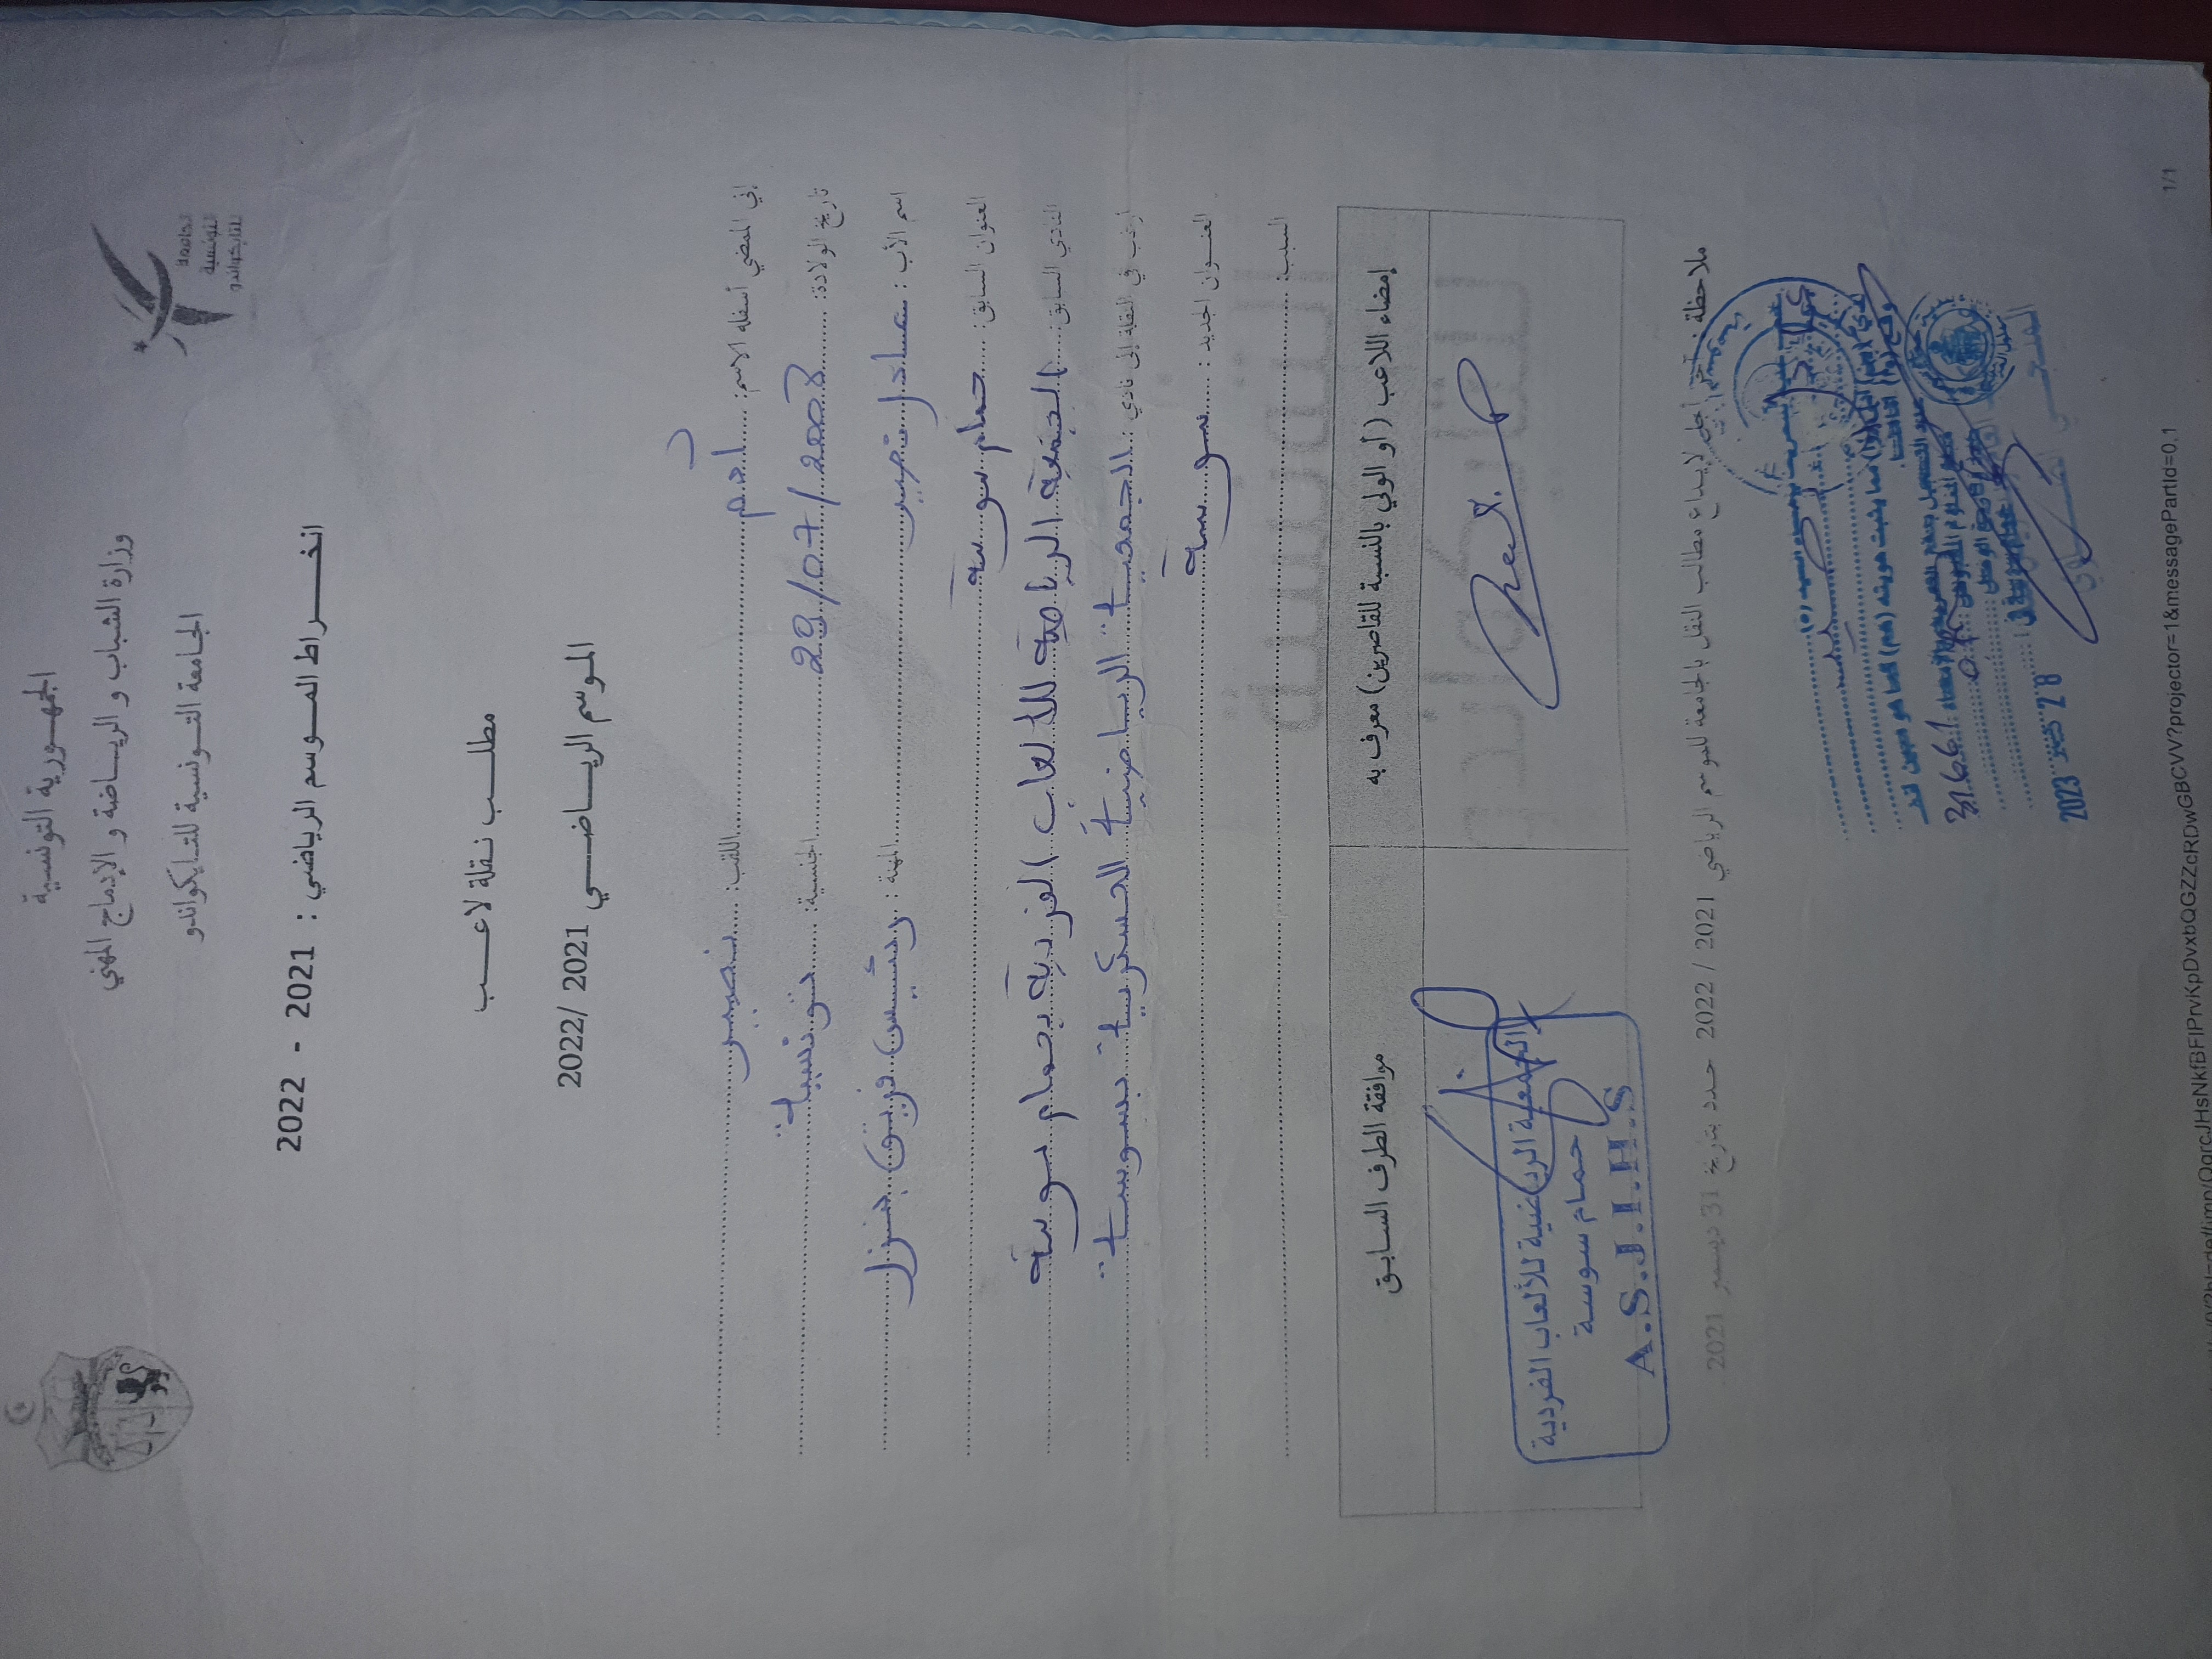 الجمهورية التونسية
وزارة الشباب و الرياضة و الإدماج المهني
الجامعة التونسية للتايكواندو
الجامعة
التونسية
للتايكواندو
انخراط الموسم الرياضي : 2021 - 2022
مطلب نقلة لاعب
الموسم الرياضي 2021 /2022
إني الممضي أسفله الاسم: آدم اللقب: نصير
تاريخ الولادة: 29/07/2008 الجنسية: تونسية
اسم الأب : المهنة : رئيس فريق
العنوان السابق: حمام سوسة
النادي السابق: الجمعية الرياضية للألعاب الفردية بحمام سوسة
أرغب في النقلة إلى نادي : الجمعية الرياضية العسكرية بسوسة
العنوان الجديد : سوسة
السبب:
إمضاء اللاعب (أو الولي بالنسبة للقاصرين) معرف به
موافقة الطرف السابق
الجمعية الرياضية للألعاب الفردية
حمام سوسة
A.S.J.I.H.S
ملاحظة : آخر أجل لإيداع مطالب النقل بالجامعة للموسم الرياضي 2021 / 2022 حدد بتاريخ 31 ديسمبر 2021
31661
28 2023
1/1